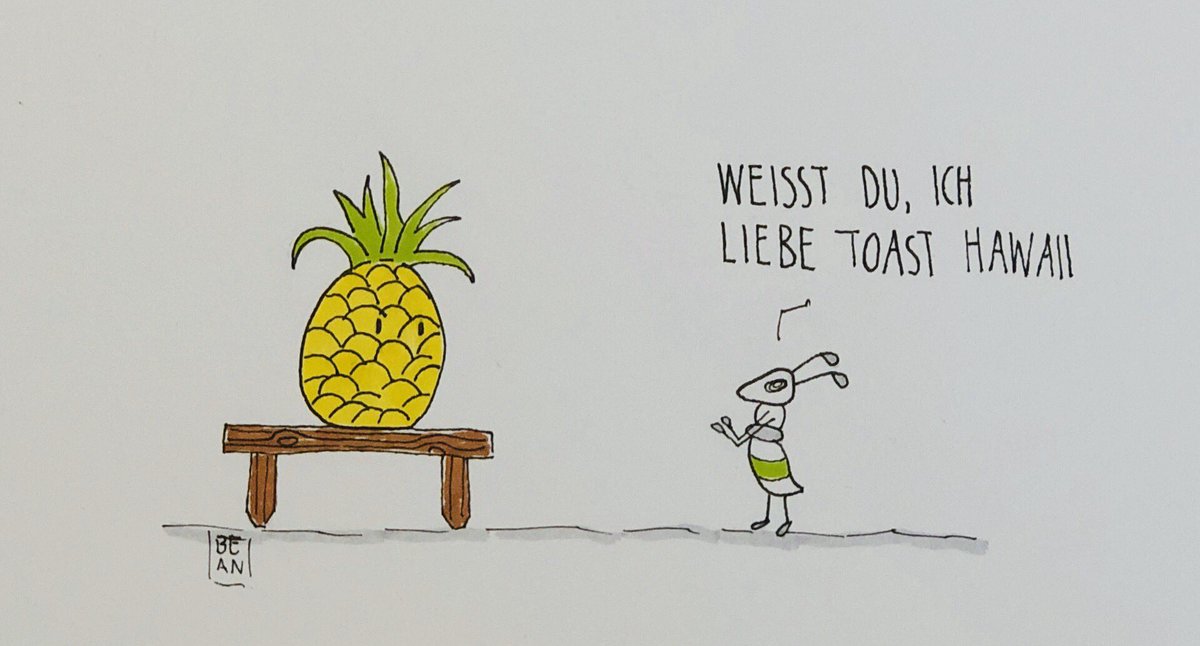 WEISST DU, ICH
LIEBE TOAST HAWAII
BE
AN